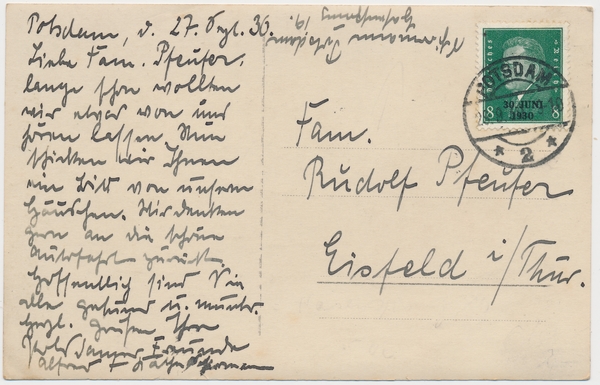 Potsdam, d. 27. Sept. 30.
Liebe Fam. Pfeufer.
lange schon wollten
wir etwas von uns
hören lassen. Nun
schicken wir Ihnen
ein Bild von unserem
Häuschen. Wir denken
gern an die schöne
Autofahrt zurück.
Hoffentlich sind Sie
alle gesund u. munter.
Herzl. Grüßen Ihre
Potsdamer Freunde
Alfred
Potsdam
Fam.
Rudolf Pfeufer
Eisfeld i/Thür.
POTSDAM
30. JUNI
1930
8 8
* 2 *